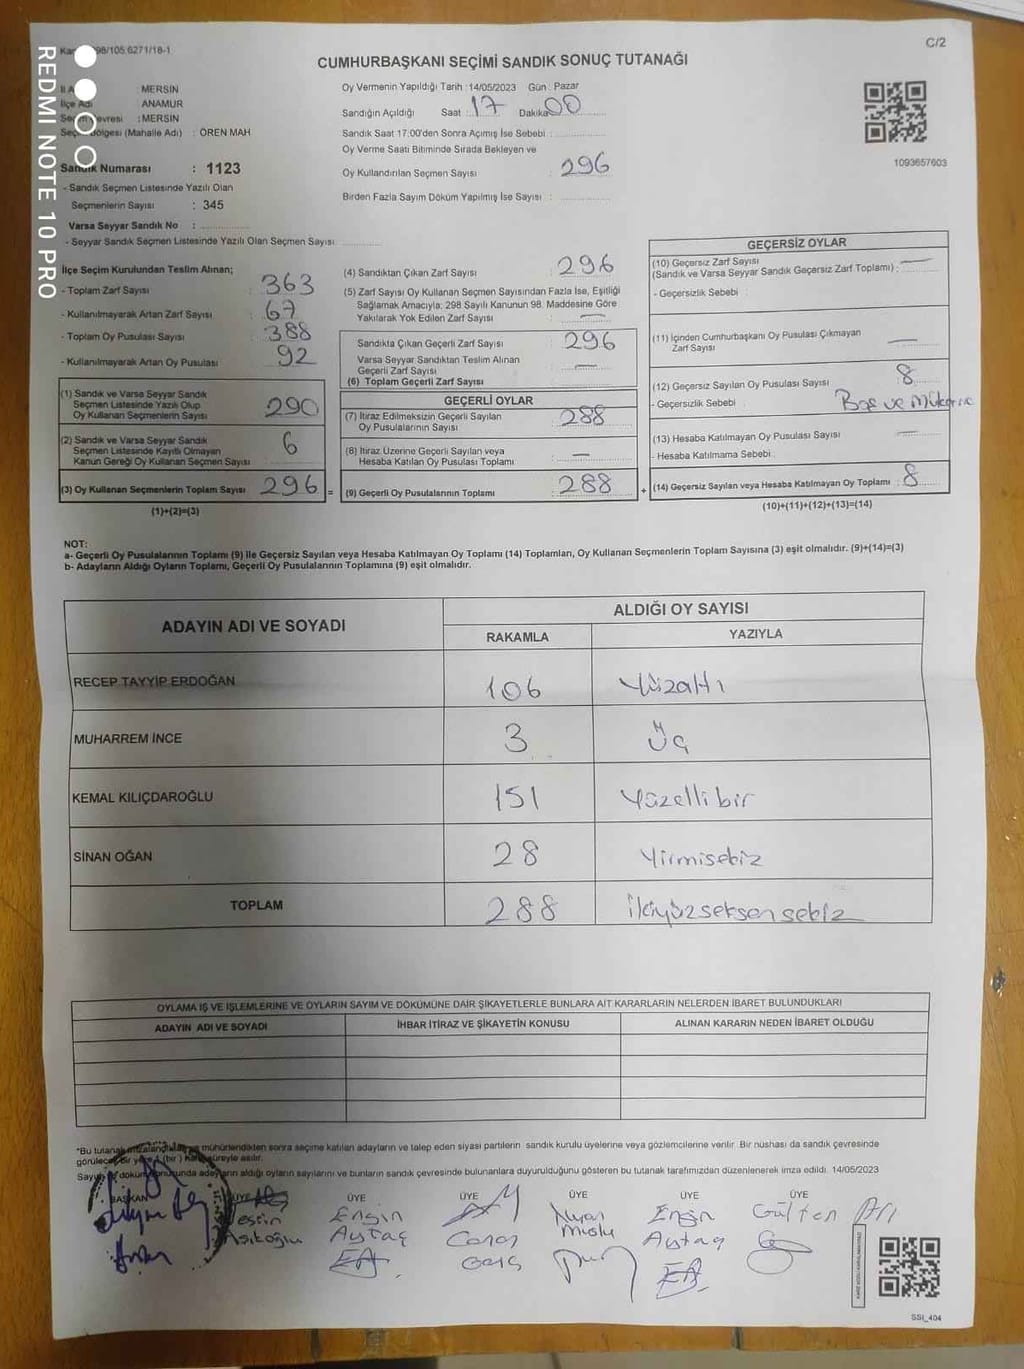 98/105.6271/18-1
C/2
CUMHURBAŞKANI SEÇİMİ SANDIK SONUÇ TUTANAĞI
MERSİN
ANAMUR
: MERSİN
(Mahalle Adı) : ÖREN MAH
Sandık Numarası : 1123
- Sandık Seçmen Listesinde Yazılı Olan
Seçmenlerin Sayısı : 345
Varsa Seyyar Sandık No :
- Seyyar Sandık Seçmen Listesinde Yazılı Olan Seçmen Sayısı:
Oy Vermenin Yapıldığı Tarih :14/05/2023 Gün : Pazar
Sandığın Açıldığı Saat : 17 Dakika 00
Sandık Saat 17:00'den Sonra Açımış İse Sebebi :
Oy Verme Saati Bitiminde Sırada Bekleyen ve
Oy Kullandırılan Seçmen Sayısı : 296
Birden Fazla Sayım Döküm Yapılmış İse Sayısı :
1093657603
İlçe Seçim Kurulundan Teslim Alınan;
- Toplam Zarf Sayısı : 363
- Kullanılmayarak Artan Zarf Sayısı : 67
- Toplam Oy Pusulası Sayısı : 388
- Kullanılmayarak Artan Oy Pusulası : 92
(1) Sandık ve Varsa Seyyar Sandık
Seçmen Listesinde Yazılı Olup
Oy Kullanan Seçmenlerin Sayısı : 290
(2) Sandık ve Varsa Seyyar Sandık
Seçmen Listesinde Kayıtlı Olmayan
Kanun Gereği Oy Kullanan Seçmen Sayısı : 6
(3) Oy Kullanan Seçmenlerin Toplam Sayısı : 296 =
(1)+(2)=(3)
(4) Sandıktan Çıkan Zarf Sayısı : 296
(5) Zarf Sayısı Oy Kullanan Seçmen Sayısından Fazla İse, Eşitliği
Sağlamak Amacıyla; 298 Sayılı Kanunun 98. Maddesine Göre
Yakılarak Yok Edilen Zarf Sayısı : —
Sandıkta Çıkan Geçerli Zarf Sayısı : 296
Varsa Seyyar Sandıktan Teslim Alınan
Geçerli Zarf Sayısı : —
(6) Toplam Geçerli Zarf Sayısı
GEÇERLİ OYLAR
(7) İtiraz Edilmeksizin Geçerli Sayılan
Oy Pusulalarının Sayısı : 288
(8) İtiraz Üzerine Geçerli Sayılan veya
Hesaba Katılan Oy Pusulası Toplamı : —
(9) Geçerli Oy Pusulalarının Toplamı : 288 +
GEÇERSİZ OYLAR
(10) Geçersiz Zarf Sayısı
(Sandık ve Varsa Seyyar Sandık Geçersiz Zarf Toplamı) : —
- Geçersizlik Sebebi :
(11) İçinden Cumhurbaşkanı Oy Pusulası Çıkmayan
Zarf Sayısı : —
(12) Geçersiz Sayılan Oy Pusulası Sayısı : 8
- Geçersizlik Sebebi : Boş ve
(13) Hesaba Katılmayan Oy Pusulası Sayısı : —
- Hesaba Katılmama Sebebi :
(14) Geçersiz Sayılan veya Hesaba Katılmayan Oy Toplamı : 8
(10)+(11)+(12)+(13)=(14)
NOT:
a- Geçerli Oy Pusulalarının Toplamı (9) ile Geçersiz Sayılan veya Hesaba Katılmayan Oy Toplamı (14) Toplamları, Oy Kullanan Seçmenlerin Toplam Sayısına (3) eşit olmalıdır. (9)+(14)=(3)
b- Adayların Aldığı Oyların Toplamı, Geçerli Oy Pusulalarının Toplamına (9) eşit olmalıdır.
ADAYIN ADI VE SOYADI
ALDIĞI OY SAYISI
RAKAMLA YAZIYLA
RECEP TAYYİP ERDOĞAN 106 Yüzaltı
MUHARREM İNCE 3 Üç
KEMAL KILIÇDAROĞLU 151 Yüzellibir
SİNAN OĞAN 28 Yirmisekiz
TOPLAM 288 İkiyüzseksensekiz
OYLAMA İŞ VE İŞLEMLERİNE VE OYLARIN SAYIM VE DÖKÜMÜNE DAİR ŞİKAYETLERLE BUNLARA AİT KARARLARIN NELERDEN İBARET BULUNDUKLARI
ADAYIN ADI VE SOYADI İHBAR İTİRAZ VE ŞİKAYETİN KONUSU ALINAN KARARIN NEDEN İBARET OLDUĞU
*Bu tutanak mühürlendikten sonra seçime katılan adayların ve talep eden siyasi partilerin sandık kurulu üyelerine veya gözlemcilerine verilir. Bir nüshası da sandık çevresinde
(bir) süreyle asılır.
adayların aldığı oyların sayılarını ve bunların sandık çevresinde bulunanlara duyurulduğunu gösteren bu tutanak tarafımızdan düzenlenerek imza edildi. 14/05/2023
BAŞKAN ÜYE ÜYE ÜYE ÜYE ÜYE ÜYE
Engin
Aytaç
Engin
Aytaç
Gülten Arı
SSI_404
REDMI NOTE 10 PRO